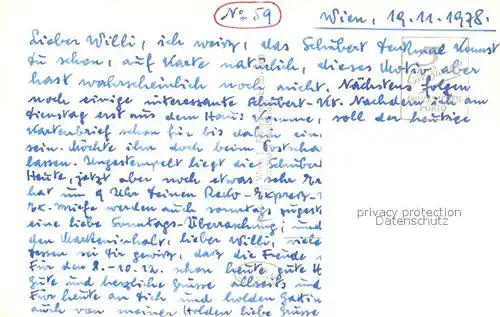 No 59
Wien, 19.11.1978.
Lieber Willi, ich weiß, das Schubert Denkmal kennst
Du schon, auf Karte natürlich, dieses Motiv aber
hast wahrscheinlich noch nicht. Nächstens folgen
noch einige interessante Schubert-Kt. Nachdem ich am
Dienstag erst aus dem Haus komme, soll der heutige
Kartenbrief schon für bis dahin ein
sein. Möchte ihn doch beim
lassen. Ungestempelt liegt die Schuber
Heute, jetzt aber noch etwas sehr Er
hat um 9 Uhr Deinen Reko-Express-
Ex. Briefe werden auch sonntags zugest
eine liebe Sonntags-Überraschung, und
den Markeninhalt, lieber Willi, viele
dessen sei Dir gewiß, daß die Freude
Für den 8.-10.12. schon heute gute
Gute und herzliche Grüsse allseits und
Für heute an Dich und holden Gattin
auch von meiner Holden liebe Grüsse
privacy protection
www.delcampe.net